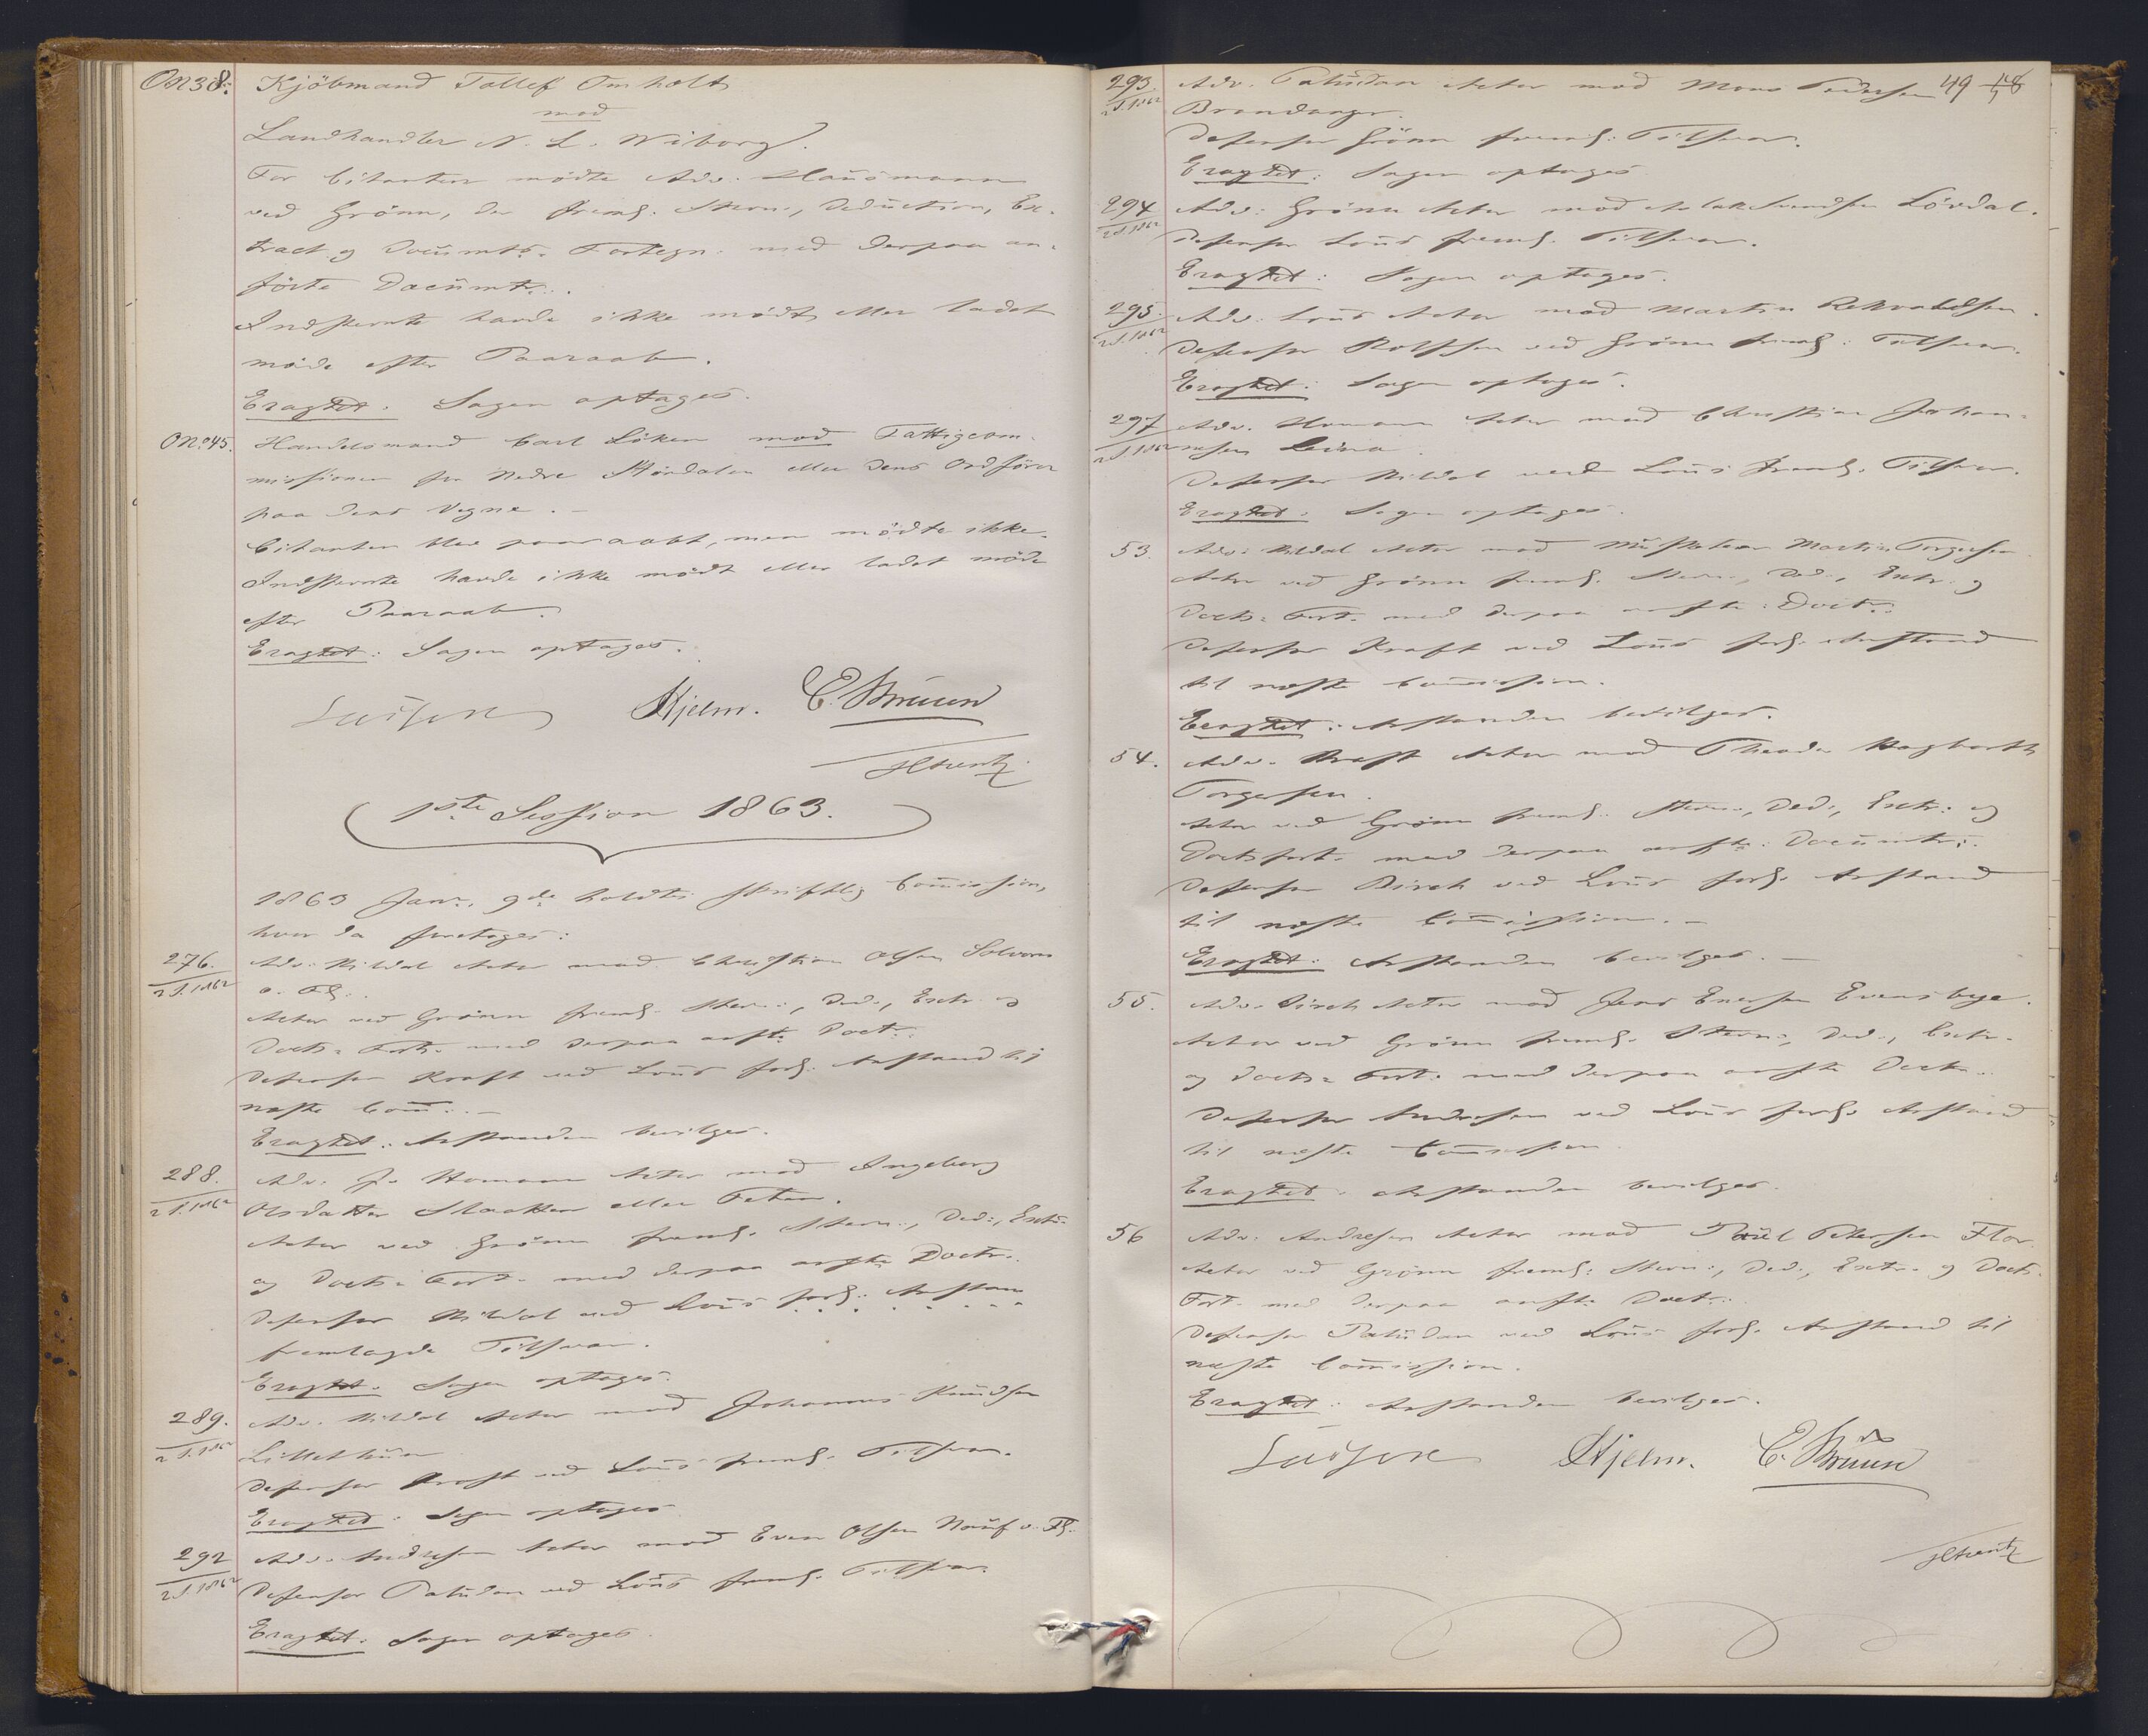 No 38. Kjöbmand Tollef Omholt
mod
Landhandler N. L. Wiborg.
For Citanten mödte Adv. Hansmann
ved Grönn, der freml. Stevn., Deduction, Ex-
tract og Documts. Fortegn. med derpaa an-
förte Documtr.
Indstevnte havde ikke mödt eller ladet
möde efter Paaraab.
Eragtet: Sagen optages.
No 45. Handelsmand Carl Löken mod Fattigcom-
missionen for Nedre Stördalen eller dens Ordförer
paa dens Vegne. -
Citanten blev paaraabt, men mödte ikke.
Indstevnte havde ikke mödt eller ladet möde
efter Paaraab.
Eragtet: Sagen optages.
Hjelm. C. Bruun
1ste Session 1863.
1863 Janr. 9de holdtes skriftlig Commission,
hvor da foretoges:
276. Adv. Mildal Actor mod Christian Olsen Solvorn
2 S. 1862 o. Fl.
Actor ved Grönn freml. Stevn., Ded., Extr. og
Docts. Fort. med derpaa anfte. Doctr.
Defensor Kraft ved Lous forl. Anstand til
næste Comm. -
Eragtet: Anstanden bevilges.
288. Adv. J. Homann Actor mod Ingeborg
2 S. 1862 Olsdatter Slaatten eller Teten.
Actor ved Grönn freml. Stevn., Ded., Extr.
og Docts. Fort. med derpaa anfte Doctr.
Defensor Mildal ved Lous forl. Anstan
fremlagde Tilsvar.
Eragtet: Sagen optages.
289. Adv. Mildal Actor mod Johannes Knudsen
2 S. 1862 Lillethun
Defensor Kraft ved Lous freml. Tilsvar.
Eragtet: Sagen optages
292 Adv. Andresen Actor mod Even Olsen o. Fl.
2 S. 1862 Defensor Paludan ved Lous freml. Tilsvar.
Eragtet: Sagen optages.
49 48
293. Adv. Paludan Actor mod Mons Pedersen
2 S. 1862 Brandanger.
Defensor Grönn freml. Tilsvar.
Eragtet: Sagen optages
294 Adv. Grönn Actor mod Aslak Svendsen Lövdal.
2 S. 1862 Defensor Lous freml. Tilsvar.
Eragtet: Sagen optages.
295. Adv. Lous Actor mod Martin Rekvaldsen.
2 S. 1862 Defensor Rolfsen ved Grönn freml. Tilsvar.
Eragtet: Sagen optages.
297 Adv. Homann Actor mod Christian Johan-
2 S. 1862 nesen
Defensor Mildal ved Lous freml. Tilsvar.
Eragtet: Sagen optages.
53. Adv. Mildal Actor mod Musketeer Martin Torgersen
Actor ved Grönn freml. Stevn., Ded., Extr. og
Docts. Fort. med derpaa anfte. Doctr.
Defensor Kraft ved Lous forl. Anstand
til næste Commission.
Eragtet: Anstanden bevilges.
54. Adv. Kraft Actor mod Theodor Hagbarth
Torgersen.
Actor ved Grönn freml. Stevn., Ded., Extr. og
Doctsfort. med derpaa anfte. Documtr.
Defensor Birch ved Lous forl. Anstand
til næste Commission. -
Eragtet: Anstanden bevilges. -
55. Adv. Birch Actor mod Jens Enersen Evensbye.
Actor ved Grönn freml. Stevn., Ded., Extr.
og Docts. Fort. med derpaa anfte Doctr.
Defensor Andresen ved Lous forl. Anstand
til næste Commission
Eragtet: Anstanden bevilges.
56 Adv. Andresen Actor mod Poul Petersen Flor.
Actor ved Grönn freml. Stevn., Ded., Extr. og Docts.
Fort. med derpaa anfte Doctr.
Defensor Paludan ved Lous forl. Anstand til
næste Commission.
Eragtet: Anstanden bevilges.
Hjelm. C. Bruun